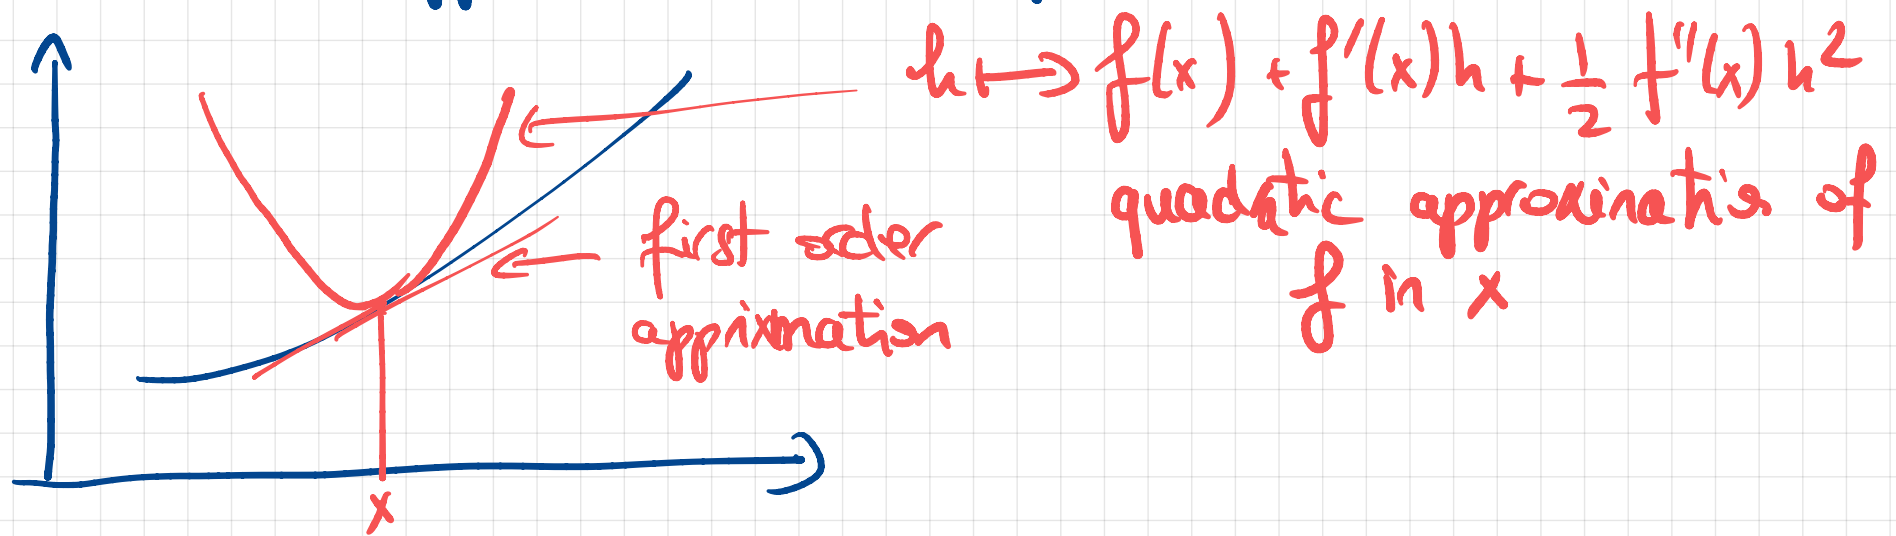 h ↦ f(x) + f'(x)h + 1/2 f''(x) h²
quadratic approximation of
f in x
first order
apprixmation
x